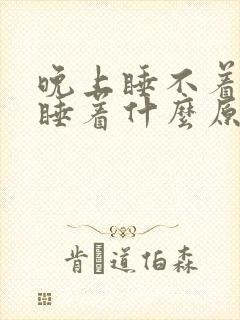 晚上睡不着
睡着什麽原
肯道伯森